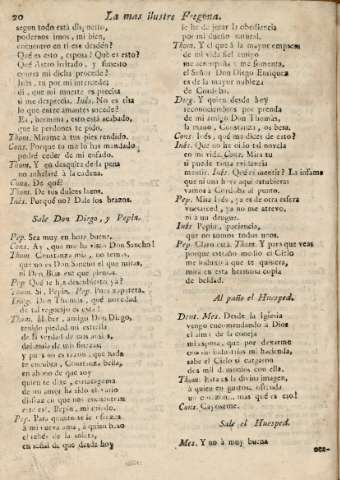 20 La mas ilustre Fregona.
segun todo está dispuesto,
podemos irnos, mi bien,
encuentro en ti ese desdén?
Qué es esto, esposa? Qué es esto?
Qué Astro irritado, y funesto
contra mi dicha procede?
Inés, tu por mi intercede:
di, que mi muerte es precisa
si me desprecia. Inés. No es risa
lo que entre amantes sucede?
Ea, hermana, esto está acabado,
que le perdones te pido.
Thom. Mirame á tus pies rendido.
Cons. Porque tu me lo has mandado,
podré ceder de mi enfado.
Thom. Y en desquite de la pena
no anhelaré á la cadena.
Cons. De qué?
Thom. De tus dulces lazos.
Inés. Porqué no? Dale los brazos.
Sale Don Diego, y Pepin.
Pep. Sea muy en hora buena.
Cons. Ay, que me ha visto Don Sancho!
Thom. Constanza mia, no temas,
que no es Don Sancho el que miras,
ni Don Blas ese que piensas.
Pep. Qué te has descubierto, ya?
Thom. Sí, Pepin. Pep. Pues zapateta.
Dieg. Don Thomás, qué novedad
de tal regocijo es esta?
Thom. Haber, amigo Don Diego,
tenido piedad mi estrella
de la verdad de mis ansias,
del ansia de mis finezas;
y pues no es razon, que nada
te encubra, Constanza bella,
en abono de que soy
quien te dixe, estratagema
de mi amor ha sido el vario
disfraz en que nos encuentran
este es Pepin, mi criado.
Pep. Para quanto se le ofrezca
á mi nueva ama, á quien beso
el tafetán de la soleta,
en señal de que desde hoy
le he de jurar la obediencia
por mi dueño natural.
Thom. Y el que á la mayor empresa
de mi vida fiel amigo
me acompaña, y me fomenta,
el Señor Don Diego Enriquez
es de la mayor nobleza
de Cordoba.
Dieg. Y quien desde hoy
reconociendoos por prenda
de mi amigo Don Thomás,
la mano, Constanza, os besa.
Cons. Inés, qué me dices de esto?
Inés. Que no he oído tal novela
en mi vida. Cons. Mira tu
si puede tanta evidencia
mentir. Inés. Qué es mentir? La infame
que si una breva aqui estubieras
vamos á Cordoba al punto.
Pep. Mira Inés, ya es de otra esfera
vuesarced, ya no me atrevo,
ni á un drogues.
Inés Pepin, paciencia,
que no somos todos unos.
Pep. Claro está. Thom. Y para que veas
porque estraño modo el Cielo
me induxo á que te quisiera,
mira en esta hermosa copia
de beldad.
Al paño el Huesped.
Dent. Mes. Desde la Iglesia
vengo encomendando á Dios
el alma de la coneja
mi esposa, que por deverme
con sus industrias mi hacienda,
sabe el Cielo si cargaron
dos mil demonios con ella.
Thom. Esta es la divina imagen,
á quien en gustosa ofrenda
un corazon... mas qué es eso?
Cons. Cayoseme.
Sale el Huesped.
Mes. Y no á muy buena
oca-